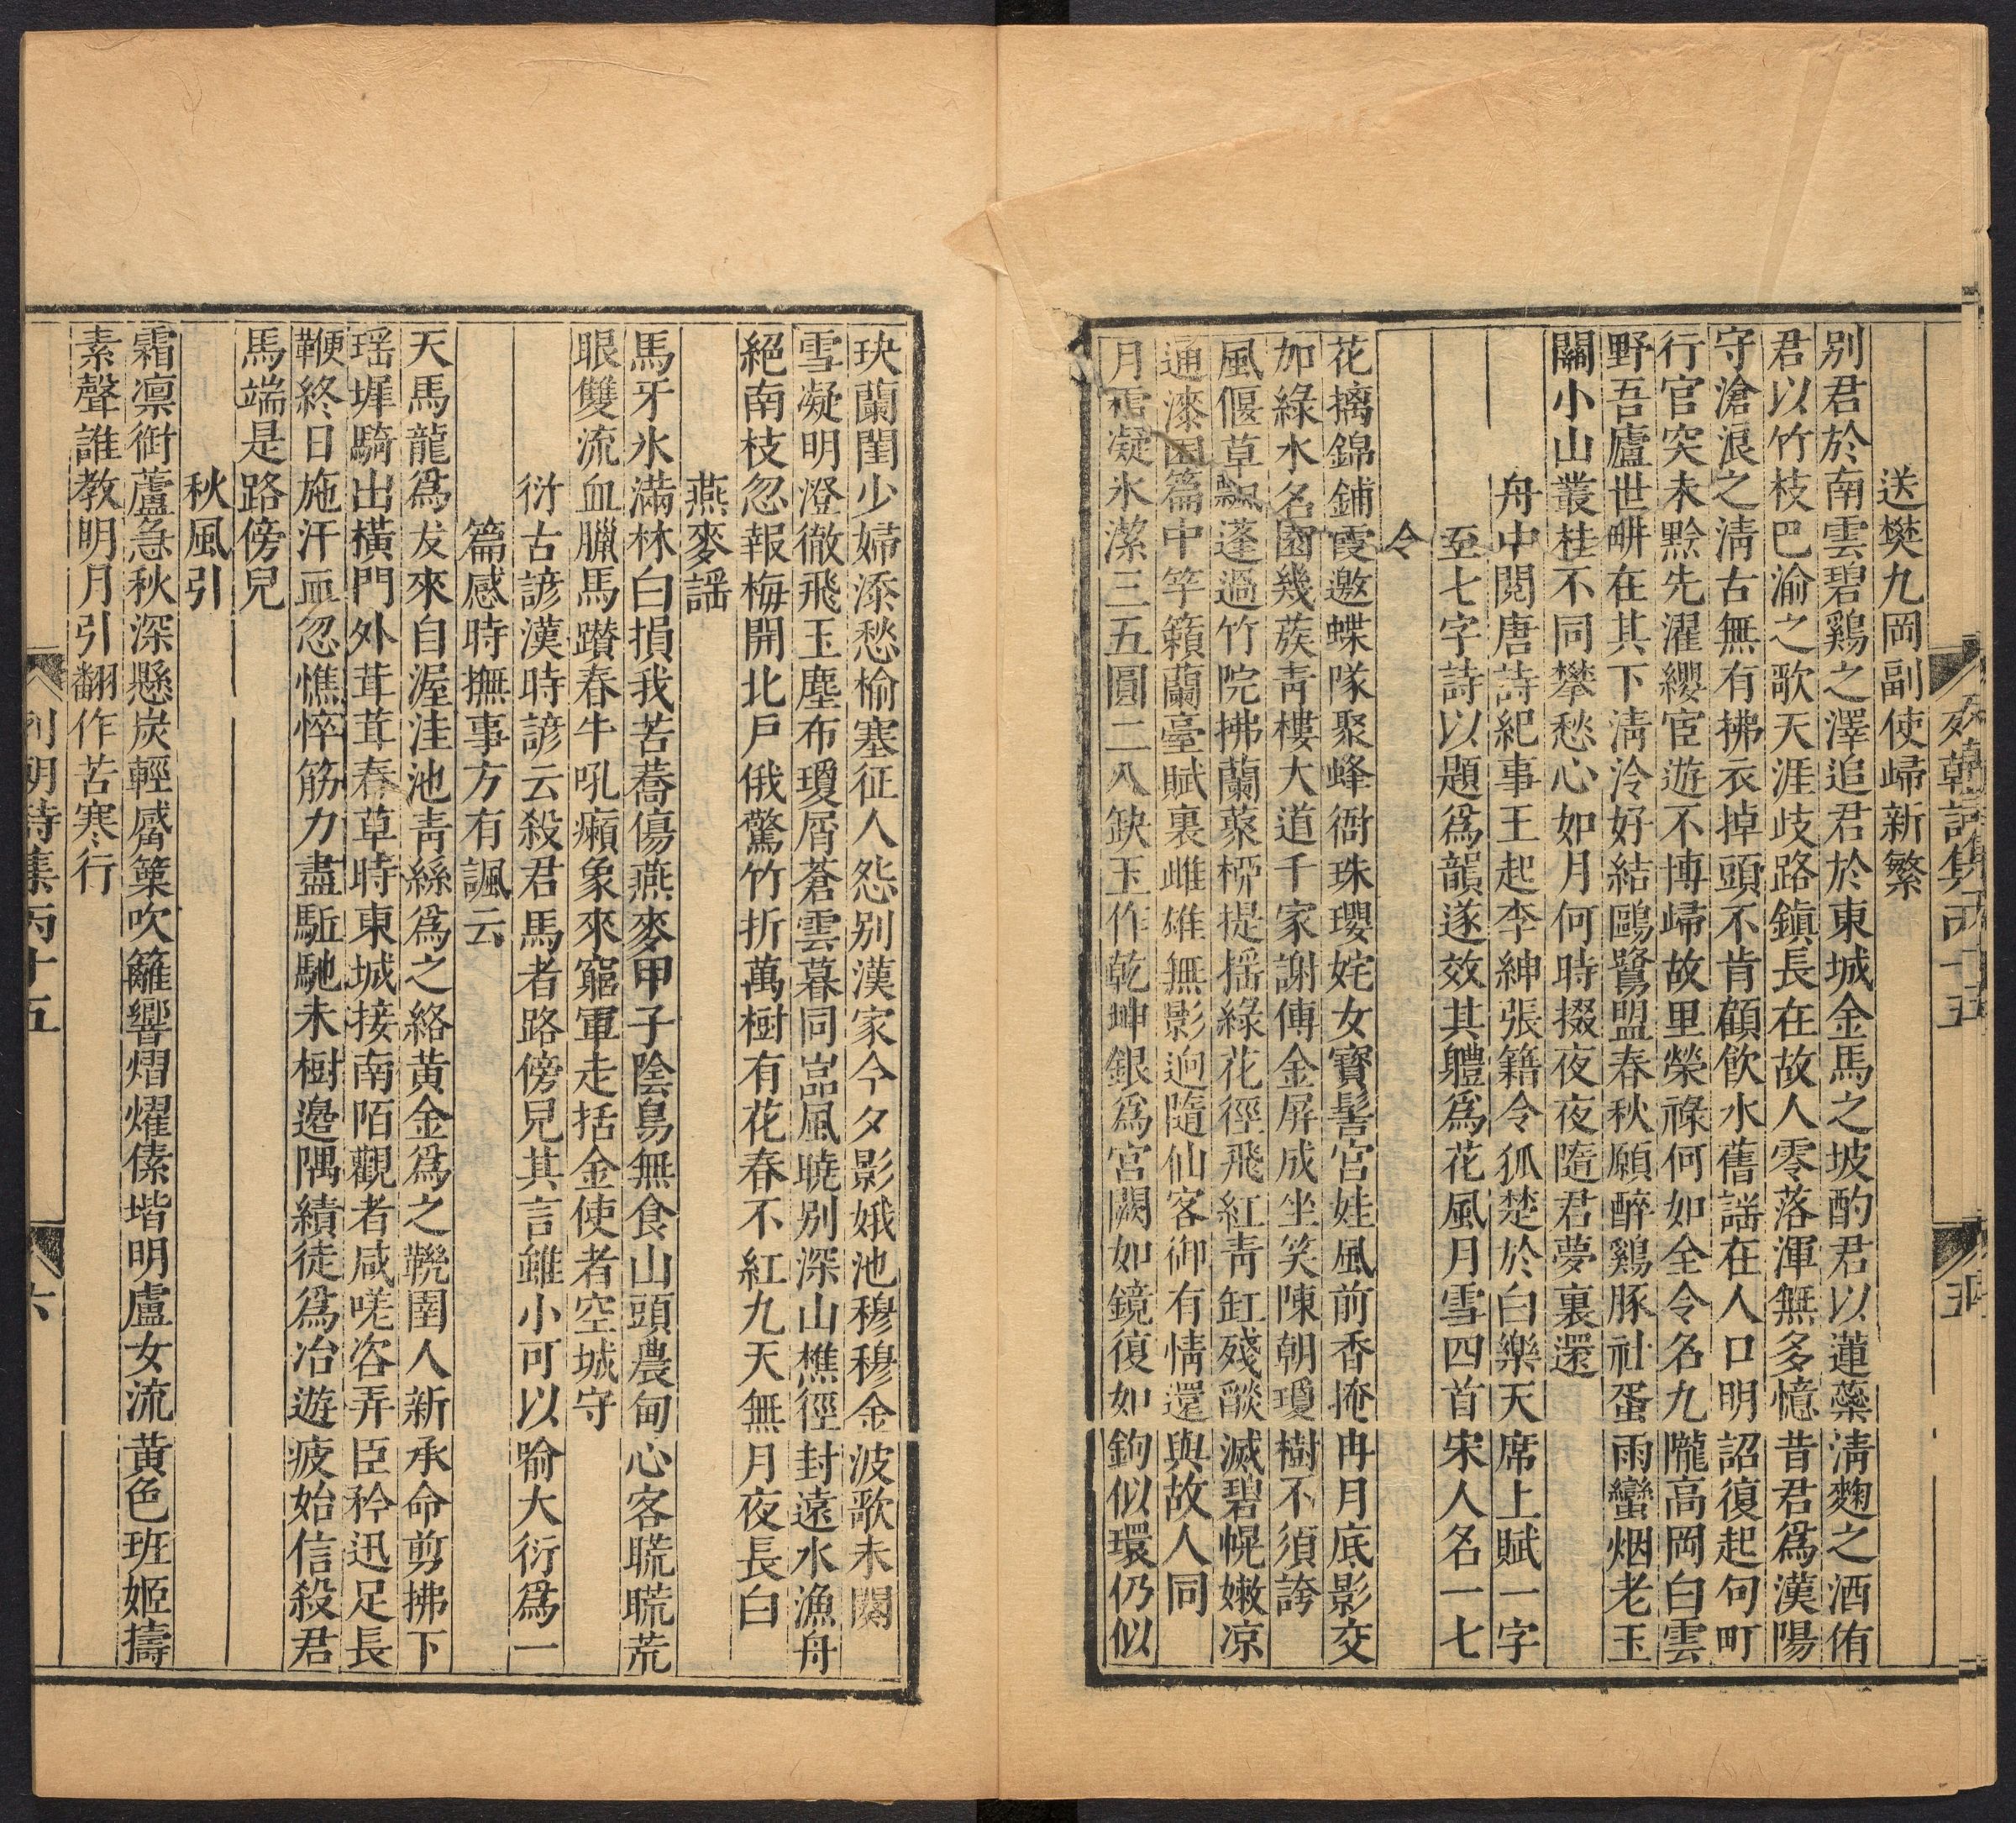 送樊九岡副使歸新繁
别君於南雲碧鷄之澤追君於東城金馬之坡酌君以蓮蘂淸麴之酒侑
君以竹枝巴渝之歌天涯歧路鎮長在故人零落渾無多憶昔君爲漢陽
守滄浪之淸古無有拂衣掉頭不肯顧飲水舊謡在人口明詔復起句町
行官突未黔先濯纓宦遊不博歸故里榮祿何如全令名九隴高岡白雲
野吾廬世畊在其下淸泠好結鷗鷺盟春秋願醉鷄豚社蛋雨蠻烟老玉
關小山叢桂不同攀愁心如月何時掇夜夜隨君夢裏還
舟中閱唐詩紀事王起李紳張籍令狐楚於白樂天席上賦一字
至七字詩以題爲韻遂效其軆爲花風月雪四首宋人名一七
令
花摛錦鋪霞邀蝶隊聚蜂衙珠瓔姹女寳髻宮娃風前香掩冉月底影交
加綠水名園幾蔟靑樓大道千家謝傅金屏成坐笑陳朝瓊樹不須誇
風偃草飄蓬過竹院拂蘭叢柳提揺綠花徑飛紅靑缸殘燄滅碧幌嫩凉
通漆園篇中竽籟蘭臺賦裏雌雄無影逈隨仙客御有情還與故人同
月霜凝氷潔三五圓二八缺玉作乾坤銀爲宮闕如鏡復如鉤似環仍似
玦蘭閨少婦添愁榆塞征人怨别漢家今夕影娥池穆穆金波歌未闋
雪凝明澄徹飛玉塵布瓊屑蒼雲暮同嵓風曉别深山樵徑封遠水漁舟
絕南枝忽報梅開北戶俄驚竹折萬樹有花春不紅九天無月夜長白
燕麥謡
馬牙氷滿林白損我苦蕎傷燕麥甲子陰鳥無食山頭農甸心客䀮䀮荒
眼雙流血臘馬躦春牛吼癩象來窮軍走括金使者空城守
衍古諺漢時諺云殺君馬者路傍兒其言雖小可以喻大衍爲一
篇感時撫事方有諷云
天馬龍爲友來自渥洼池靑絲爲之絡黃金爲之鞿圉人新承命剪拂下
瑶墀騎出橫門外茸茸春草時東城接南陌觀者咸嗟咨弄臣矜迅足長
鞭終日施汗血忽憔悴筋力盡馸馳未樹邉隅績徒爲冶遊疲始信殺君
馬端是路傍兒
秋風引
霜凛衜蘆急秋深懸炭輕感篥吹籬響熠燿傃堦明盧女流黃色班姬擣
素聲誰教明月引翻作苦寒行
列朝詩集丙十五
六